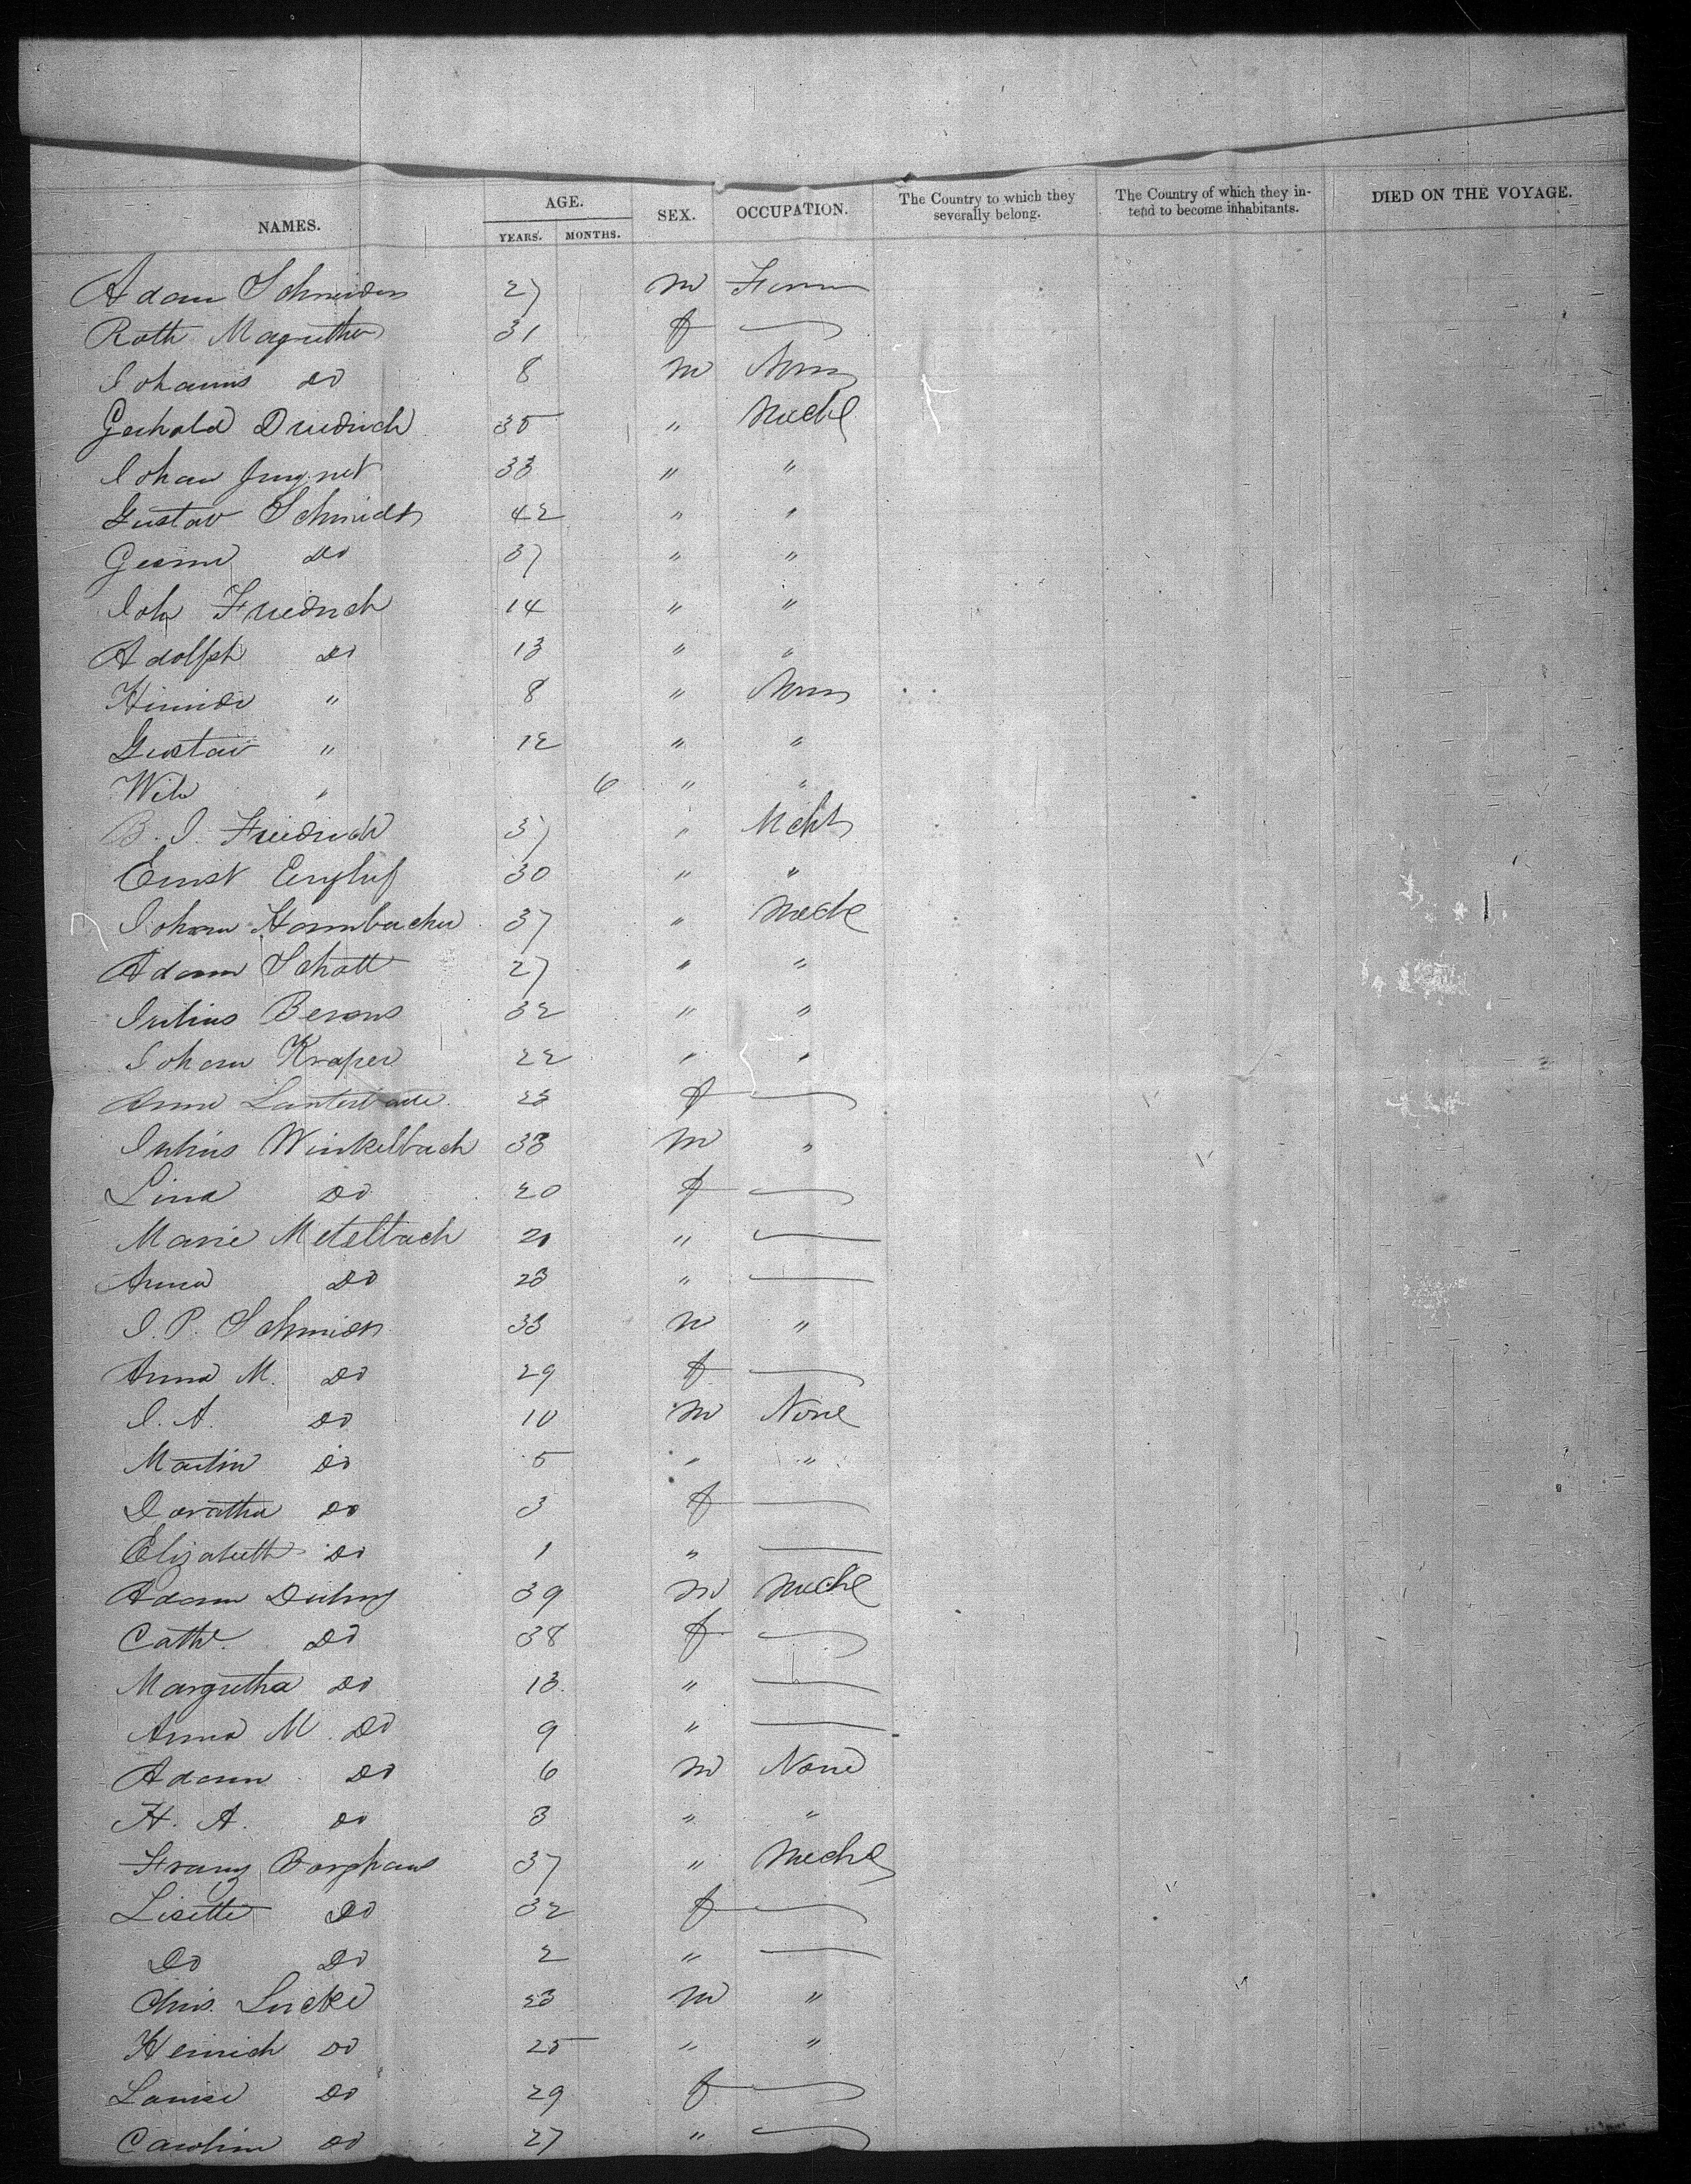 NAMES. AGE. YEARS. MONTHS. SEX. OCCUPATION. The Country to which they severally belong. The Country of which they intend to become inhabitants. DIED ON THE VOYAGE.
Adam Schneider 27 m Farmer
Roth Magretha 31 f —
Johanns do 8 m None
Gerhold Diedrich 35 " Mech
Johan Jungnet 33 " "
Gustav Schmidt 42 " "
Gesine do 37 " "
Joh Friedrich 14 " "
Adolph do 13 " "
" 8 " None
Gustav " 12 " "
Wilh " 6 " "
B. J. Friedrich 37 " Mcht
Ernst 30 " "
Johann Hannbacher 37 " Mech
Adam Schott 27 " "
Julius Berons 32 " "
Johann Kraper 22 " "
Anna 23 f —
Julius Winkelbach 33 m "
Lina do 20 f —
Marie Metelbach 21 " —
Anna do 23 " —
J. P. Schmidt 33 m "
Anna M. do 29 f —
J. A. do 10 m None
Martin do 5 " "
Doratha do 3 f —
Elizabeth do 1 " —
Adam 39 m Mech
Cath. do 38 f —
Margretha do 13 " —
Anna M. do 9 " —
Adam do 6 m None
H. A. do 3 " "
Franz Borghaus 37 " Mech
Lisette do 32 f —
Do do 2 " —
Chris. Lucke 23 m "
Heinrich do 25 " "
Louise do 29 f —
Caroline do 27 " —